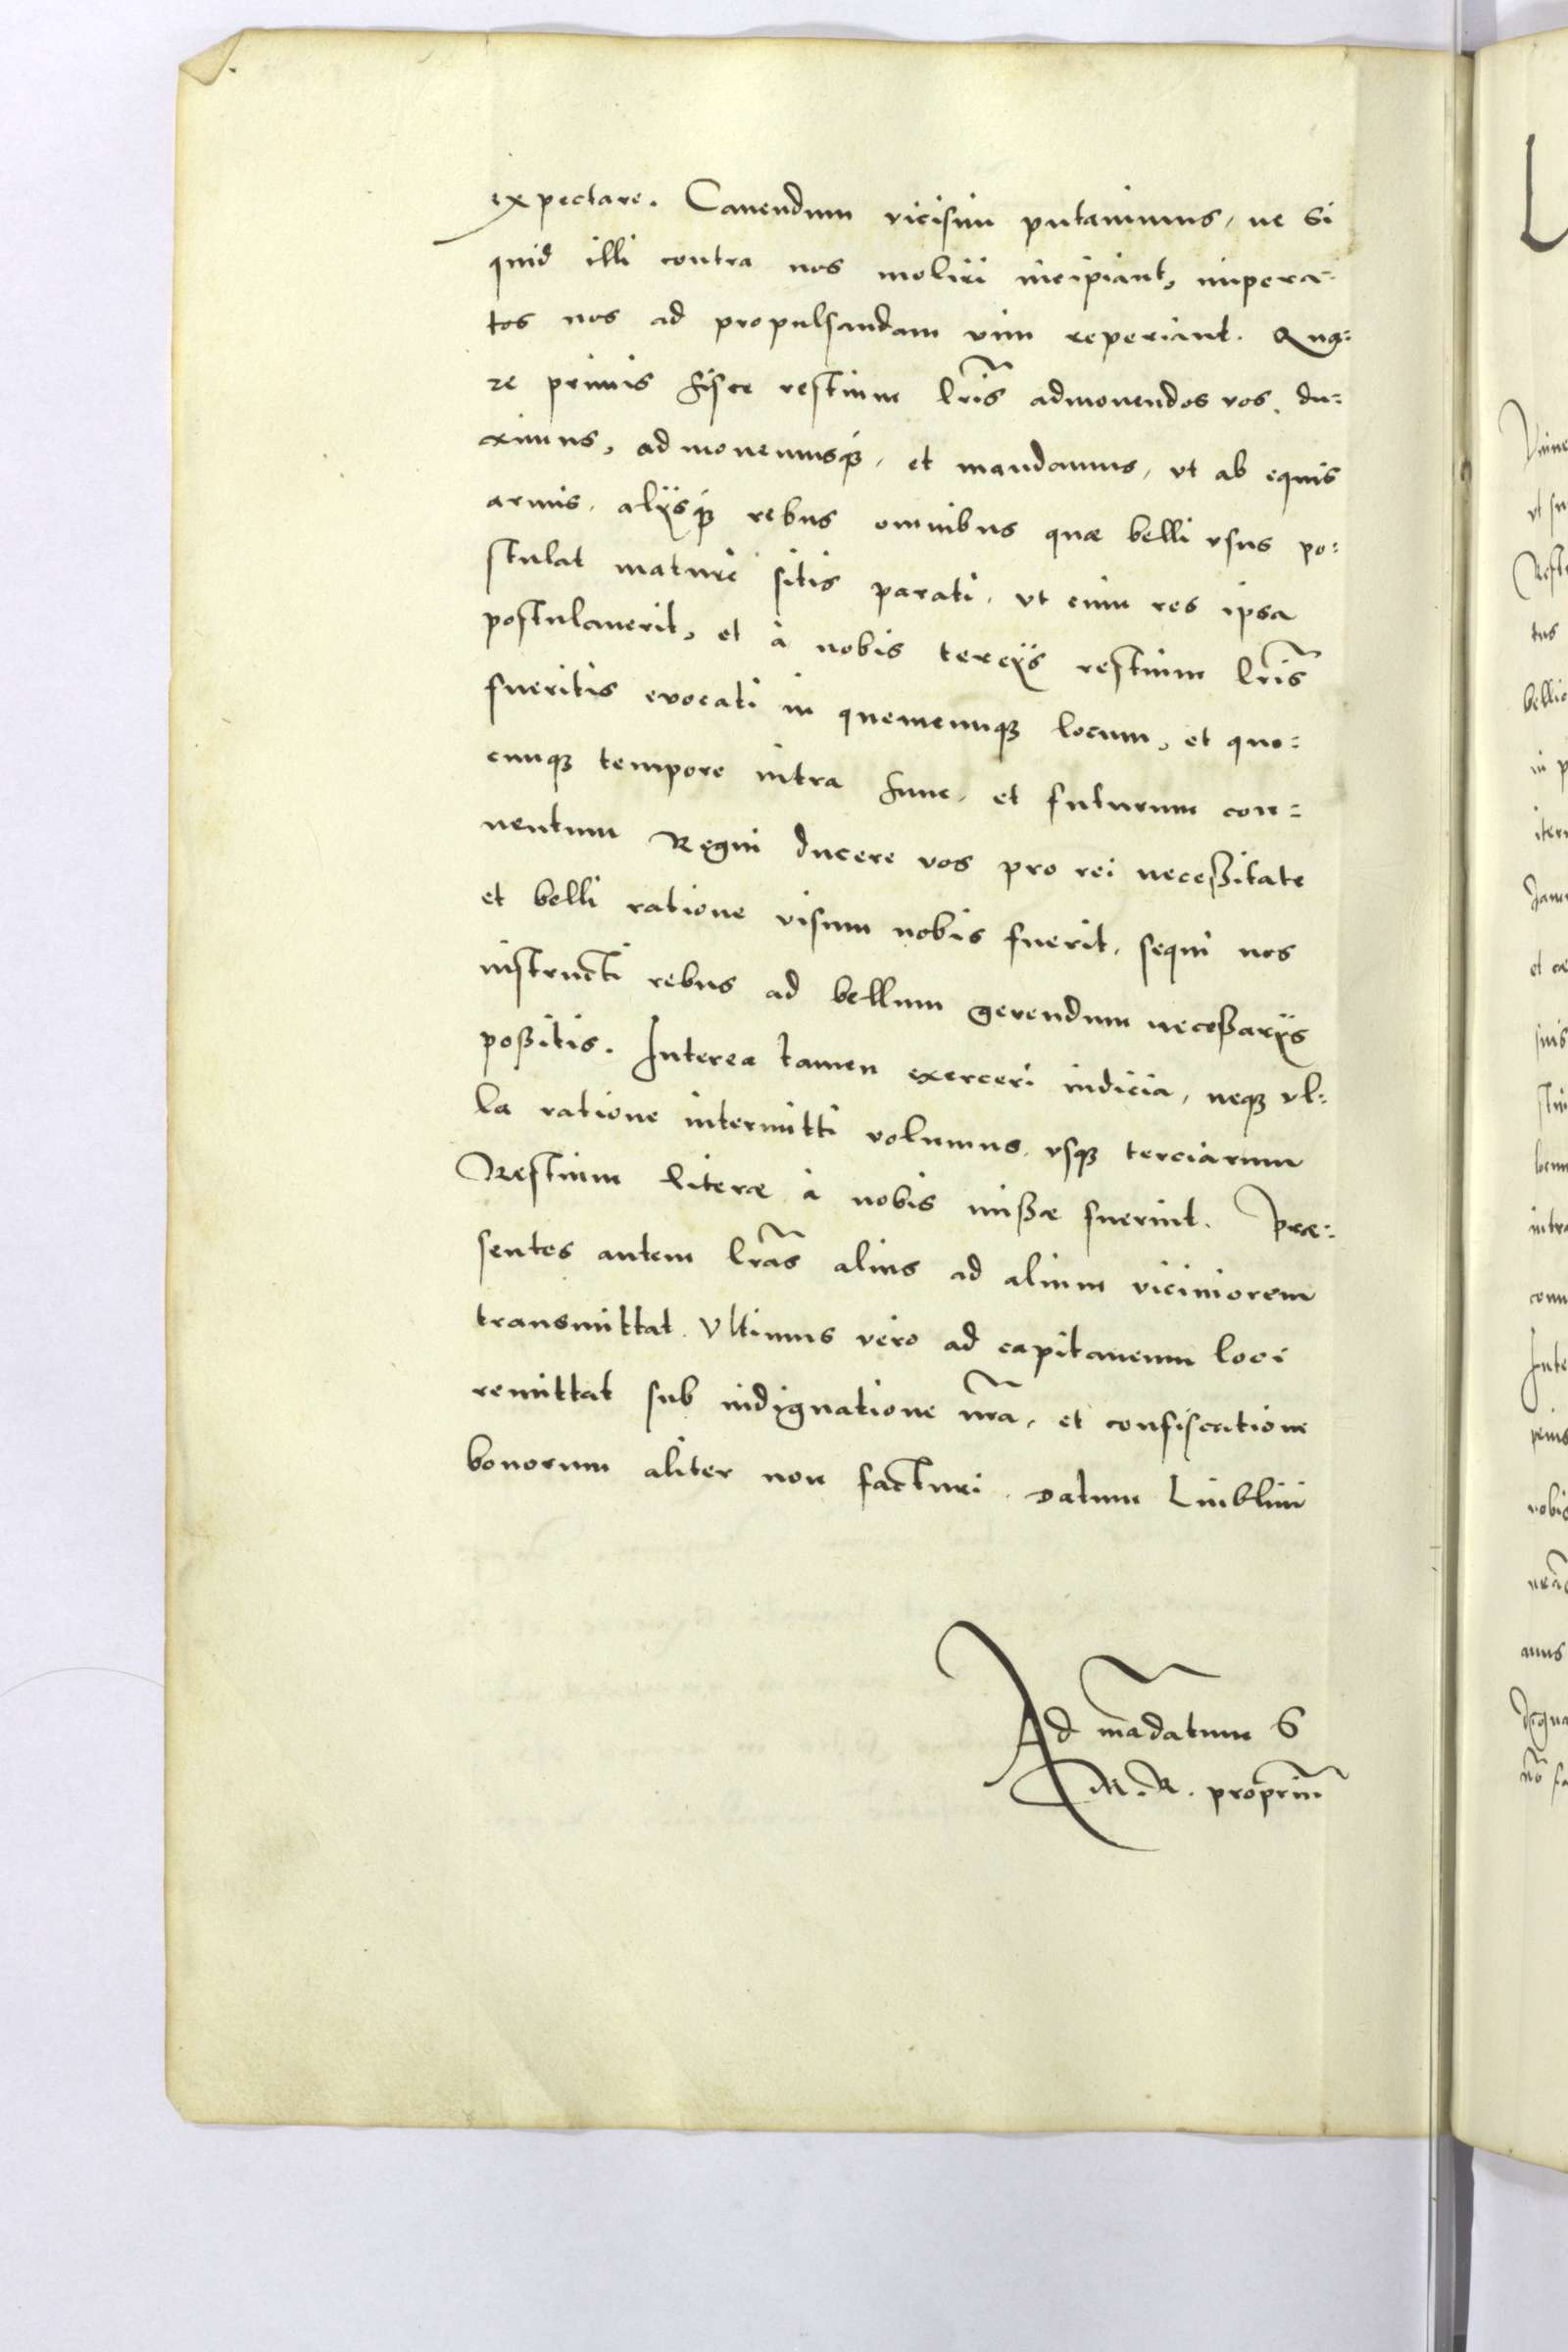 expectare. Cauendum vicisim putauimus, ne si
quid illi contra nos moliri incipiant, impera-
tos nos ad propulsandam vim reperiant. Qua-
re primis hisce restium lris admonendos vos du-
ximus, admonemusq, et mandamus, vt ab equis
armis, alijsq rebus omnibus quæ belli vsus po-
stulat mature sitis parati, vt cum res ipsa
postulauerit, et à nobis tercijs restium lris
fueritis euocati in quemcunq locum, et quo-
cunq tempore intra hunc, et futurum con-
uentum Regni ducere vos pro rei neceßitate
et belli ratione visum nobis fuerit, sequi nos
instructi rebus ad bellum gerendum neceßarijs
poßitis. Interea tamen exerceri iudicia, neq vl-
la ratione intermitti volumus, vsq terciarum
Restium literæ à nobis mißæ fuerint. Præ-
sentes autem lras alius ad alium viciniorem
transmittat. Vltimus vero ad capitaneum loci
remittat sub indignatione nra, et confiscatione
bonorum aliter non facturi. Datum Liublini
Ad madatum S
M. R. proprium